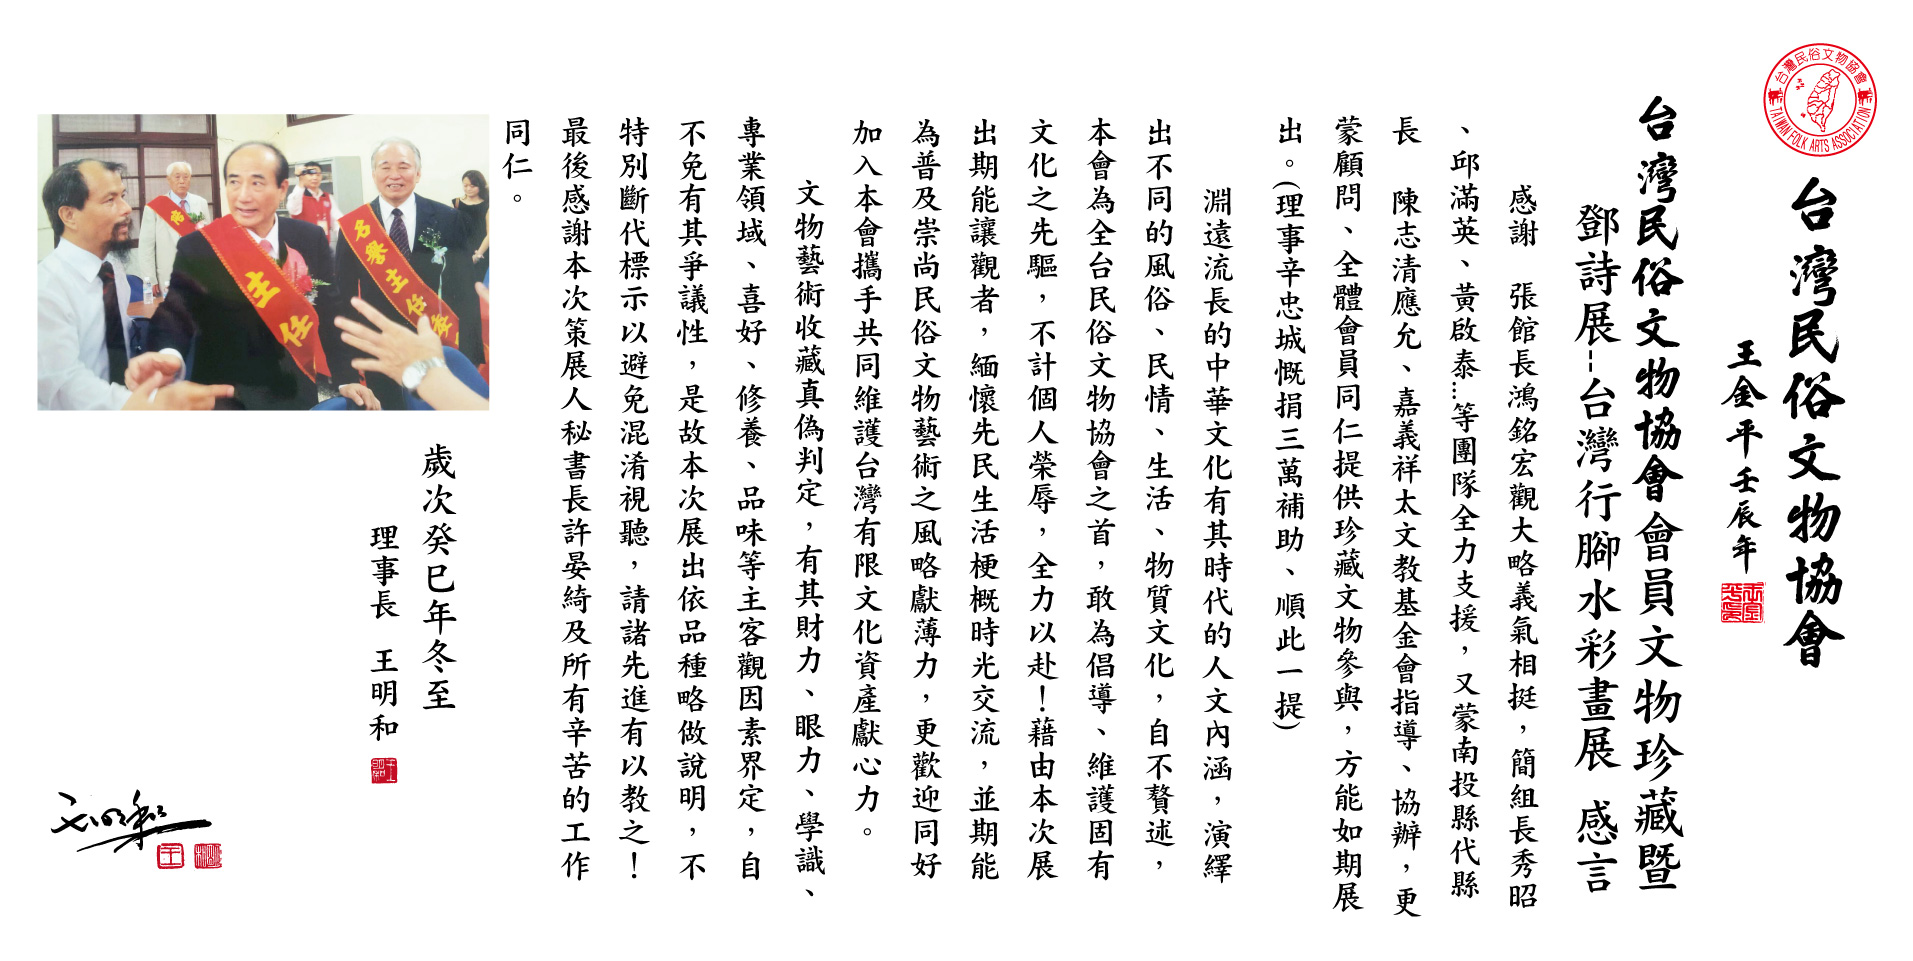 台灣民俗文物協會
TAIWAN FOLK ARTS ASSOCIATION
台灣民俗文物協會
王金平壬辰年
台灣民俗文物協會會員文物珍藏暨
鄧詩展--台灣行腳水彩畫展 感言
感謝 張館長鴻銘宏觀大略義氣相挺，簡組長秀昭
、邱滿英、黃啟泰...等團隊全力支援，又蒙南投縣代縣
長 陳志清應允、嘉義祥太文教基金會指導、協辦，更
蒙顧問、全體會員同仁提供珍藏文物參與，方能如期展
出。(理事辛忠城慨捐三萬補助、順此一提)
淵遠流長的中華文化有其時代的人文內涵，演繹
出不同的風俗、民情、生活、物質文化，自不贅述，
本會為全台民俗文物協會之首，敢為倡導、維護固有
文化之先驅，不計個人榮辱，全力以赴！藉由本次展
出期能讓觀者，緬懷先民生活梗概時光交流，並期能
為普及崇尚民俗文物藝術之風略獻薄力，更歡迎同好
加入本會攜手共同維護台灣有限文化資產獻心力。
文物藝術收藏真偽判定，有其財力、眼力、學識、
專業領域、喜好、修養、品味等主客觀因素界定，自
不免有其爭議性，是故本次展出依品種略做說明，不
特別斷代標示以避免混淆視聽，請諸先進有以教之！
最後感謝本次策展人秘書長許晏綺及所有辛苦的工作
同仁。
歲次癸巳年冬至
理事長 王明和
主任
名譽主任委